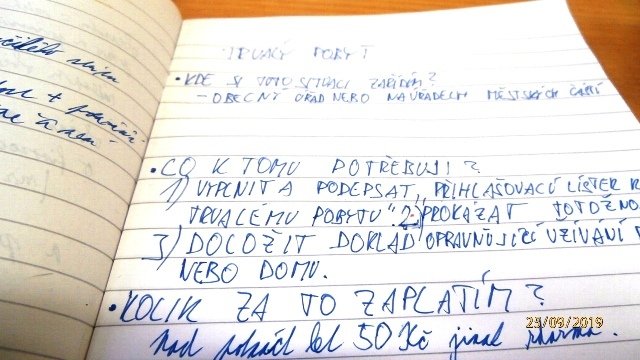 základě
TRVALÝ POBYT
• KDE SI TOTO SITUACI ZAŘÍDÍM?
– OBECNÝ ÚŘAD NEBO NA ÚŘADECH MĚSTSKÝCH ČÁSTÍ
• CO K TOMU POTŘEBUJI?
1) VYPLNIT A PODEPSAT „PŘIHLAŠOVACÍ LÍSTEK K
TRVALÉMU POBYTU“ 2) PROKÁZAT TOTOŽNO
3) DOLOŽIT DOKLAD OPRAVŇUJÍCÍ UŽÍVÁNÍ
NEBO DOMU.
• KOLIK ZA TO ZAPLATÍM?
let 50 Kč jinak zdarma.
25/09/2019